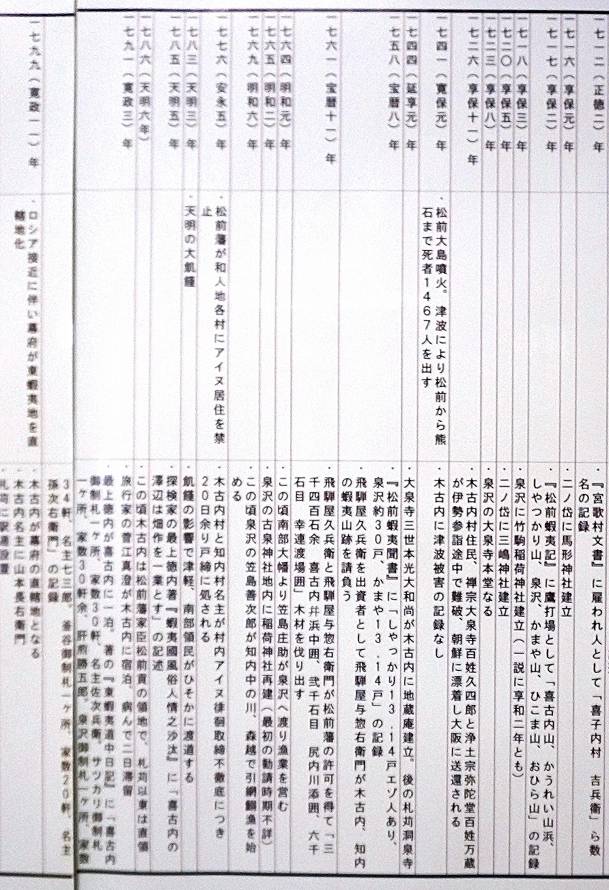 一七一二（正徳二）年
『宮歌村文書』に雇われ人として「喜子内村　吉兵衛」ら数
名の記録
一七一六（享保元）年
二ノ岱に馬形神社建立
一七一七（享保二）年
『松前蝦夷記』に鷹打場として「喜古内山、かうれい山浜、
しやつかり山、泉沢、かまや山、ひこま山、おひら山」の記録
一七一八（享保三）年
泉沢に竹駒稲荷神社建立（一説に享和二年とも）
一七二〇（享保五）年
二ノ岱に三嶋神社建立
一七二三（享保八）年
泉沢の大泉寺本堂なる
一七二六（享保十一）年
木古内村住民、禅宗大泉寺百姓久四郎と浄土宗弥陀堂百姓万蔵
が伊勢参詣途中で難破、朝鮮に漂着し大阪に送還される
一七四一（寛保元）年
・松前大島噴火。津波により松前から熊
石まで死者1467人を出す
・木古内に津波被害の記録なし
一七四四（延享元）年
大泉寺三世本光大和尚が木古内に地蔵庵建立。後の札苅洞泉寺
一七五八（宝暦八）年
・『松前蝦夷聞書』に「しやっかり13,14戸エゾ人あり、
泉沢約30戸、かまや13,14戸」の記録
飛騨屋久兵衛を出資者として飛騨屋与惣右衛門が木古内、知内
の蝦夷山跡を請負う
一七六一（宝暦十一）年
飛騨屋久兵衛と飛騨屋与惣右衛門が松前藩の許可を得て「三
千四百石余、喜古内井浜中囲、弐千石目　尻内川添囲、六千
石目　幸連渡場囲」木材を伐り出す
一七六四（明和元）年
・この頃南部大幡より笠島庄助が泉沢へ渡り漁業を営む
一七六五（明和二）年
泉沢の古泉神社地内に稲荷神社再建（最初の勧請時期不詳）
一七六九（明和六）年
この頃泉沢の笠島善次郎が知内中の川、森越で引網鰯漁を始
める
一七七六（安永五）年
・松前藩が和人地各村にアイヌ居住を禁
止
・木古内村と知内村名主が村内アイヌ徘徊取締不徹底につき
20日余り戸締に処される
一七八三（天明三）年
・天明の大飢饉
飢饉の影響で津軽、南部領民がひそかに渡道する
一七八五（天明五）年
探検家の最上徳内著『蝦夷國風俗人情之沙汰』に「喜古内の
澤辺は畑作を一業とす」の記述
一七八六（天明六年）
・この頃木古内は松前藩家臣松前貢の領地で、札苅以東は直領
旅行家の菅江真澄が木古内に宿泊、病んで二日滞留
一七九一（寛政三）年
最上徳内が喜古内に一泊。著の『東蝦夷道中日記』に「喜古内
御制札一ヶ所、家数30軒、名主佐次兵衛、サツカリ御制札
一ヶ所、家数30軒余、肝煎勝五郎、泉沢御制札一ヶ所、家数
34軒、名主七三郎。釜谷御制札一ヶ所、家数20軒、名主
孫次右衛門」の記録
一七九九（寛政一一）年
・ロシア接近に伴い幕府が東蝦夷地を直
轄地化
・木古内が幕府の直轄地となる
・木古内名主に山本長右衛門
・札苅に駅逓設置